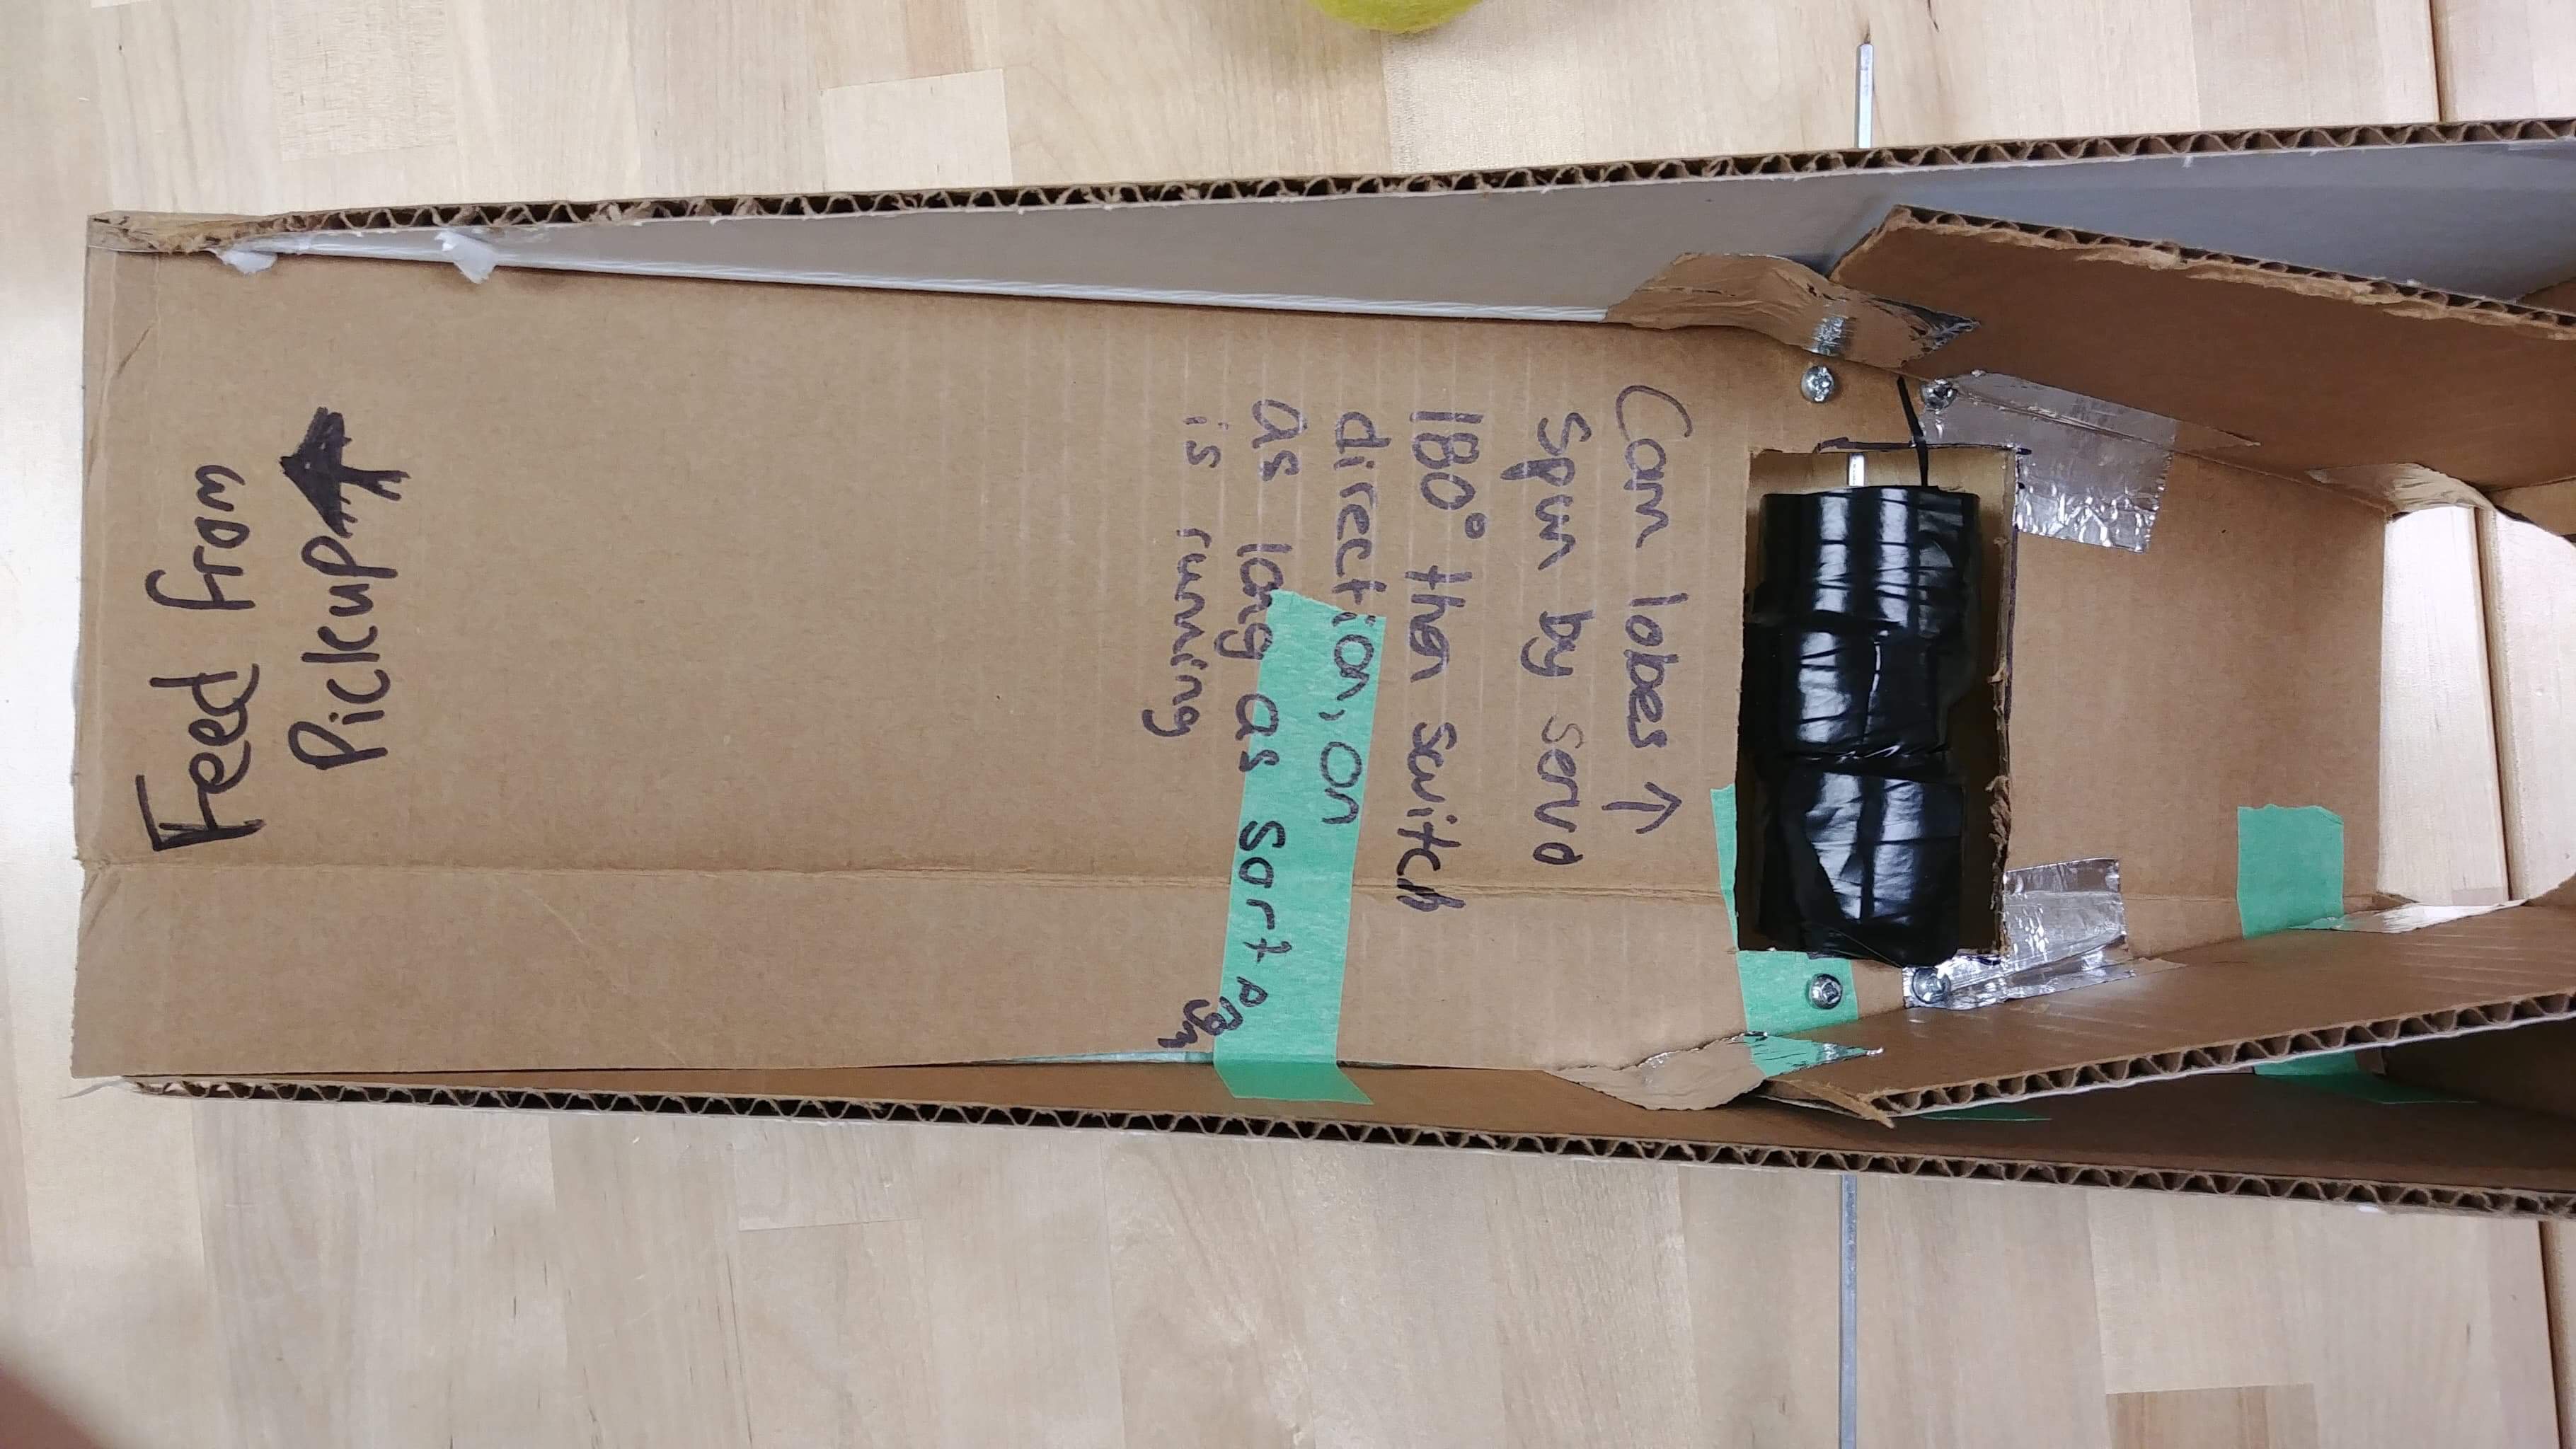 Feed from
Pickup
Cam lobes ↑
Spun by servo
180° then switch
direction, on
as long as sort Pgm
is running